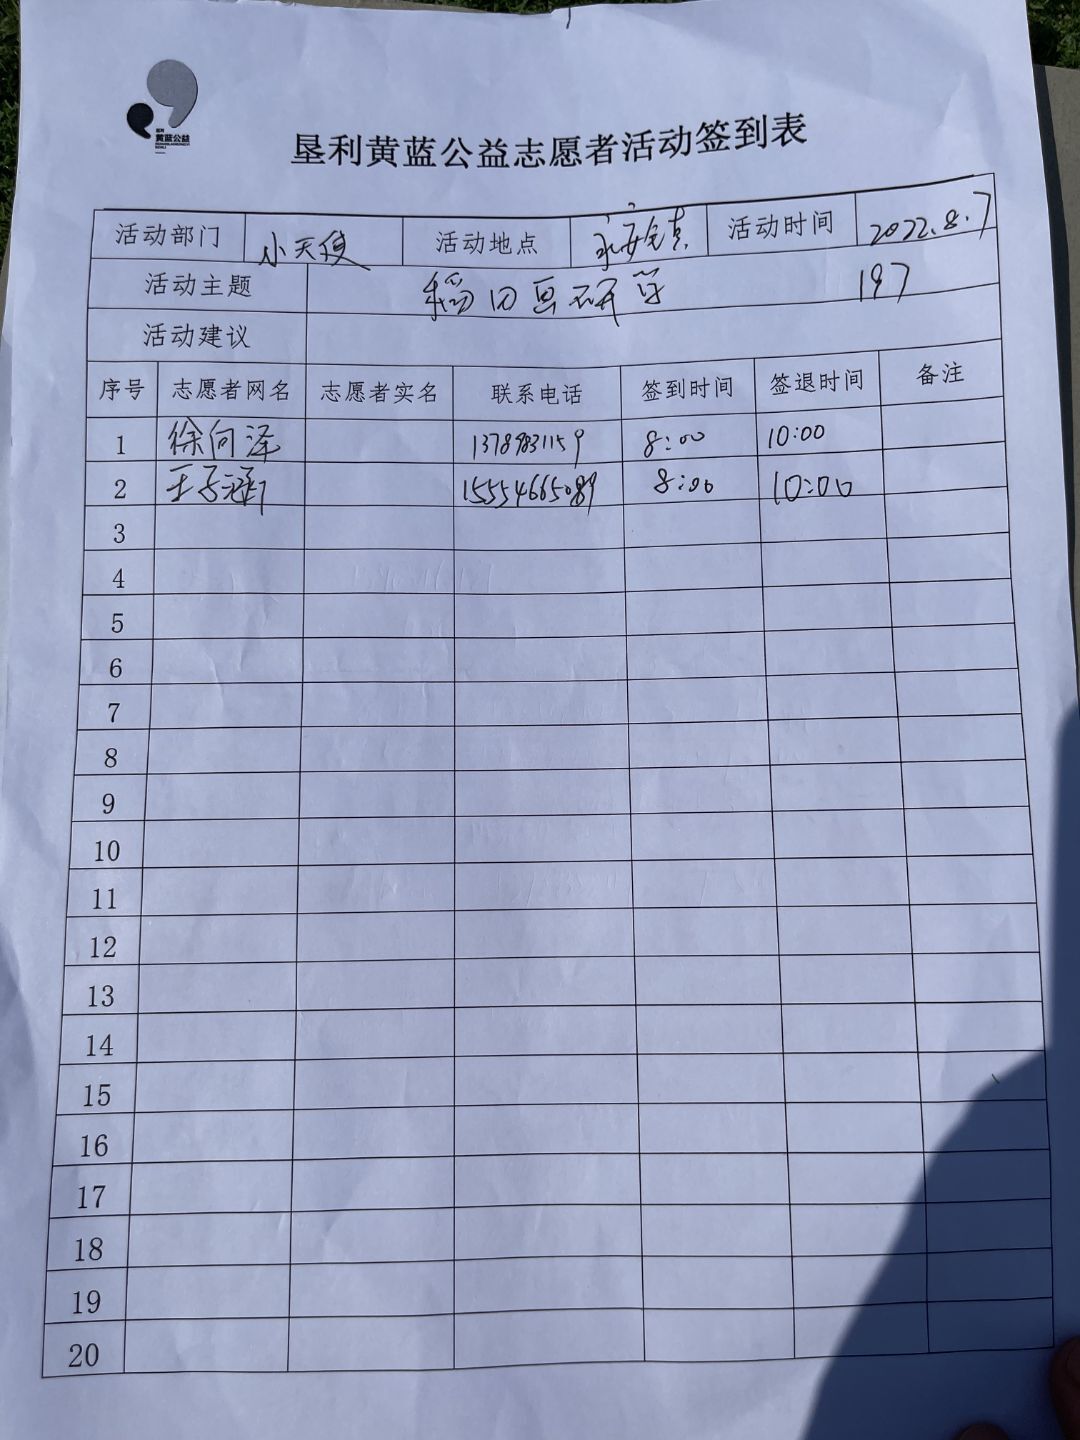 黄蓝公益
垦利黄蓝公益志愿者活动签到表
活动部门 小天使 活动地点 永安镇 活动时间 2022.8.7
活动主题 稻田画研学 197
活动建议
序号 志愿者网名 志愿者实名 联系电话 签到时间 签退时间 备注
1 徐向泽 8:00 10:00
2 王子涵 15554665089 8:00 10:00
3
4
5
6
7
8
9
10
11
12
13
14
15
16
17
18
19
20